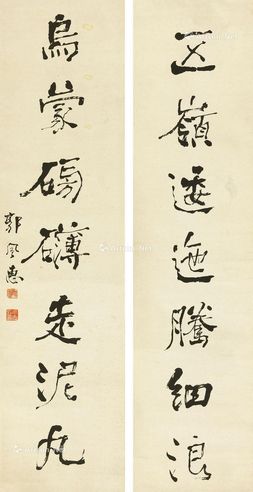 五嶺逶迤騰細浪
烏蒙磅礴走泥丸
郭風惠